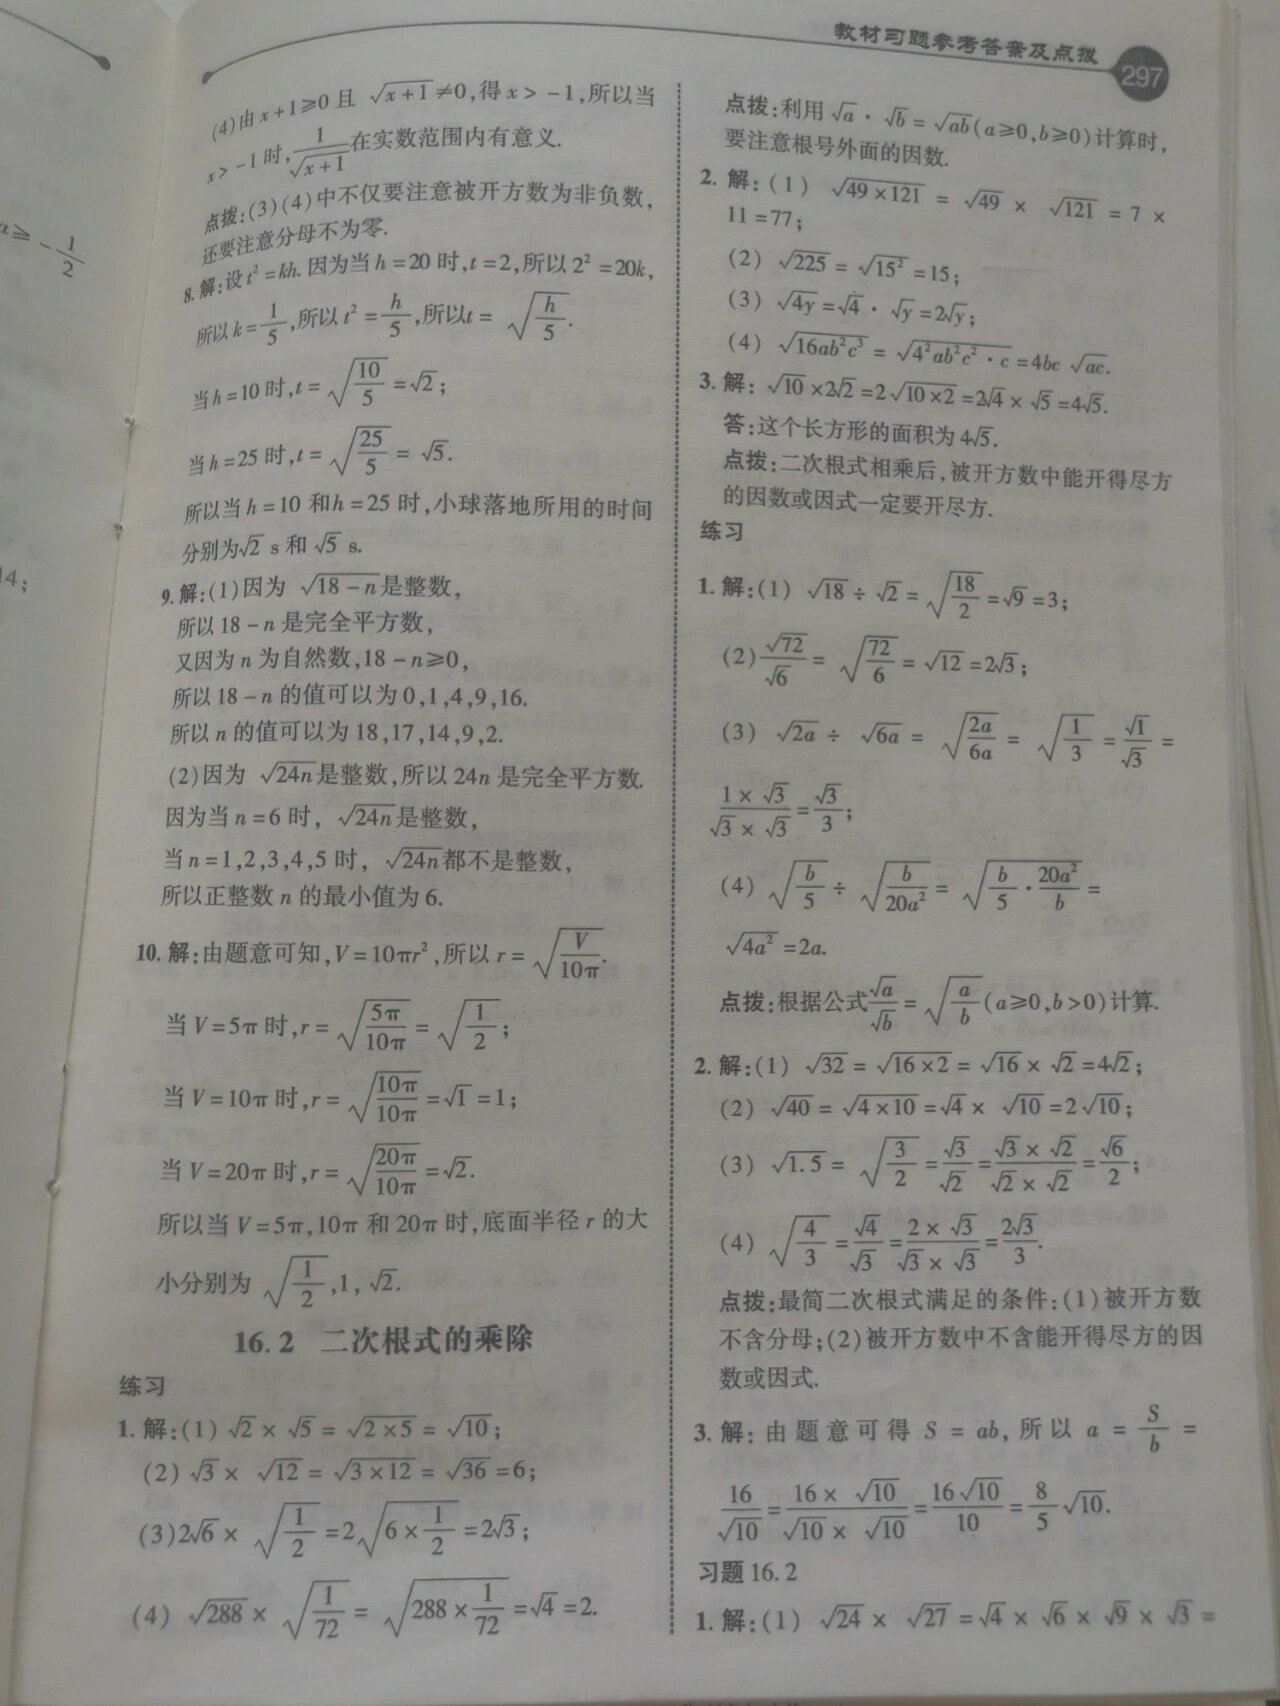 教材习题参考答案及点拨 297
a≥-1/2
14;
(4)由x+1≥0且 √(x+1)≠0,得x>-1,所以当
x>-1时,1/√(x+1)在实数范围内有意义.
点拨:(3)(4)中不仅要注意被开方数为非负数,
还要注意分母不为零.
8.解:设t²=kh.因为当h=20时,t=2,所以2²=20k,
所以k=1/5,所以t²=h/5,所以t=√(h/5).
当h=10时,t=√(10/5)=√2;
当h=25时,t=√(25/5)=√5.
所以当h=10和h=25时,小球落地所用的时间
分别为√2 s和√5 s.
9.解:(1)因为 √(18-n)是整数,
所以18-n是完全平方数,
又因为n为自然数,18-n≥0,
所以18-n的值可以为0,1,4,9,16.
所以n的值可以为18,17,14,9,2.
(2)因为 √(24n)是整数,所以24n是完全平方数.
因为当n=6时, √(24n)是整数,
当n=1,2,3,4,5时, √(24n)都不是整数,
所以正整数n的最小值为6.
10.解:由题意可知,V=10πr²,所以r=√(V/10π).
当V=5π时,r=√(5π/10π)=√(1/2);
当V=10π时,r=√(10π/10π)=√1=1;
当V=20π时,r=√(20π/10π)=√2.
所以当V=5π,10π和20π时,底面半径r的大
小分别为 √(1/2),1,√2.
16.2 二次根式的乘除
练习
1.解:(1) √2×√5=√(2×5)=√10;
(2) √3×√12=√(3×12)=√36=6;
(3)2√6×√(1/2)=2√(6×1/2)=2√3;
(4) √288×√(1/72)=√(288×1/72)=√4=2.
点拨:利用√a·√b=√(ab)(a≥0,b≥0)计算时,
要注意根号外面的因数.
2.解:(1) √(49×121)=√49×√121=7×
11=77;
(2) √225=√(15²)=15;
(3) √(4y)=√4·√y=2√y;
(4) √(16ab²c³)=√(4²ab²c²·c)=4bc√(ac).
3.解: √10×2√2=2√(10×2)=2√4×√5=4√5.
答:这个长方形的面积为4√5.
点拨:二次根式相乘后,被开方数中能开得尽方
的因数或因式一定要开尽方.
练习
1.解:(1) √18÷√2=√(18/2)=√9=3;
(2)√72/√6=√(72/6)=√12=2√3;
(3) √(2a)÷√(6a)=√(2a/6a)=√(1/3)=√1/√3=
(1×√3)/(√3×√3)=√3/3;
(4) √(b/5)÷√(b/20a²)=√(b/5·20a²/b)=
√(4a²)=2a.
点拨:根据公式√a/√b=√(a/b)(a≥0,b>0)计算.
2.解:(1) √32=√(16×2)=√16×√2=4√2;
(2) √40=√(4×10)=√4×√10=2√10;
(3) √1.5=√(3/2)=√3/√2=(√3×√2)/(√2×√2)=√6/2;
(4) √(4/3)=√4/√3=(2×√3)/(√3×√3)=2√3/3.
点拨:最简二次根式满足的条件:(1)被开方数
不含分母;(2)被开方数中不含能开得尽方的因
数或因式.
3.解:由题意可得S=ab,所以a=S/b=
16/√10=(16×√10)/(√10×√10)=16√10/10=8/5√10.
习题16.2
1.解:(1) √24×√27=√4×√6×√9×√3=